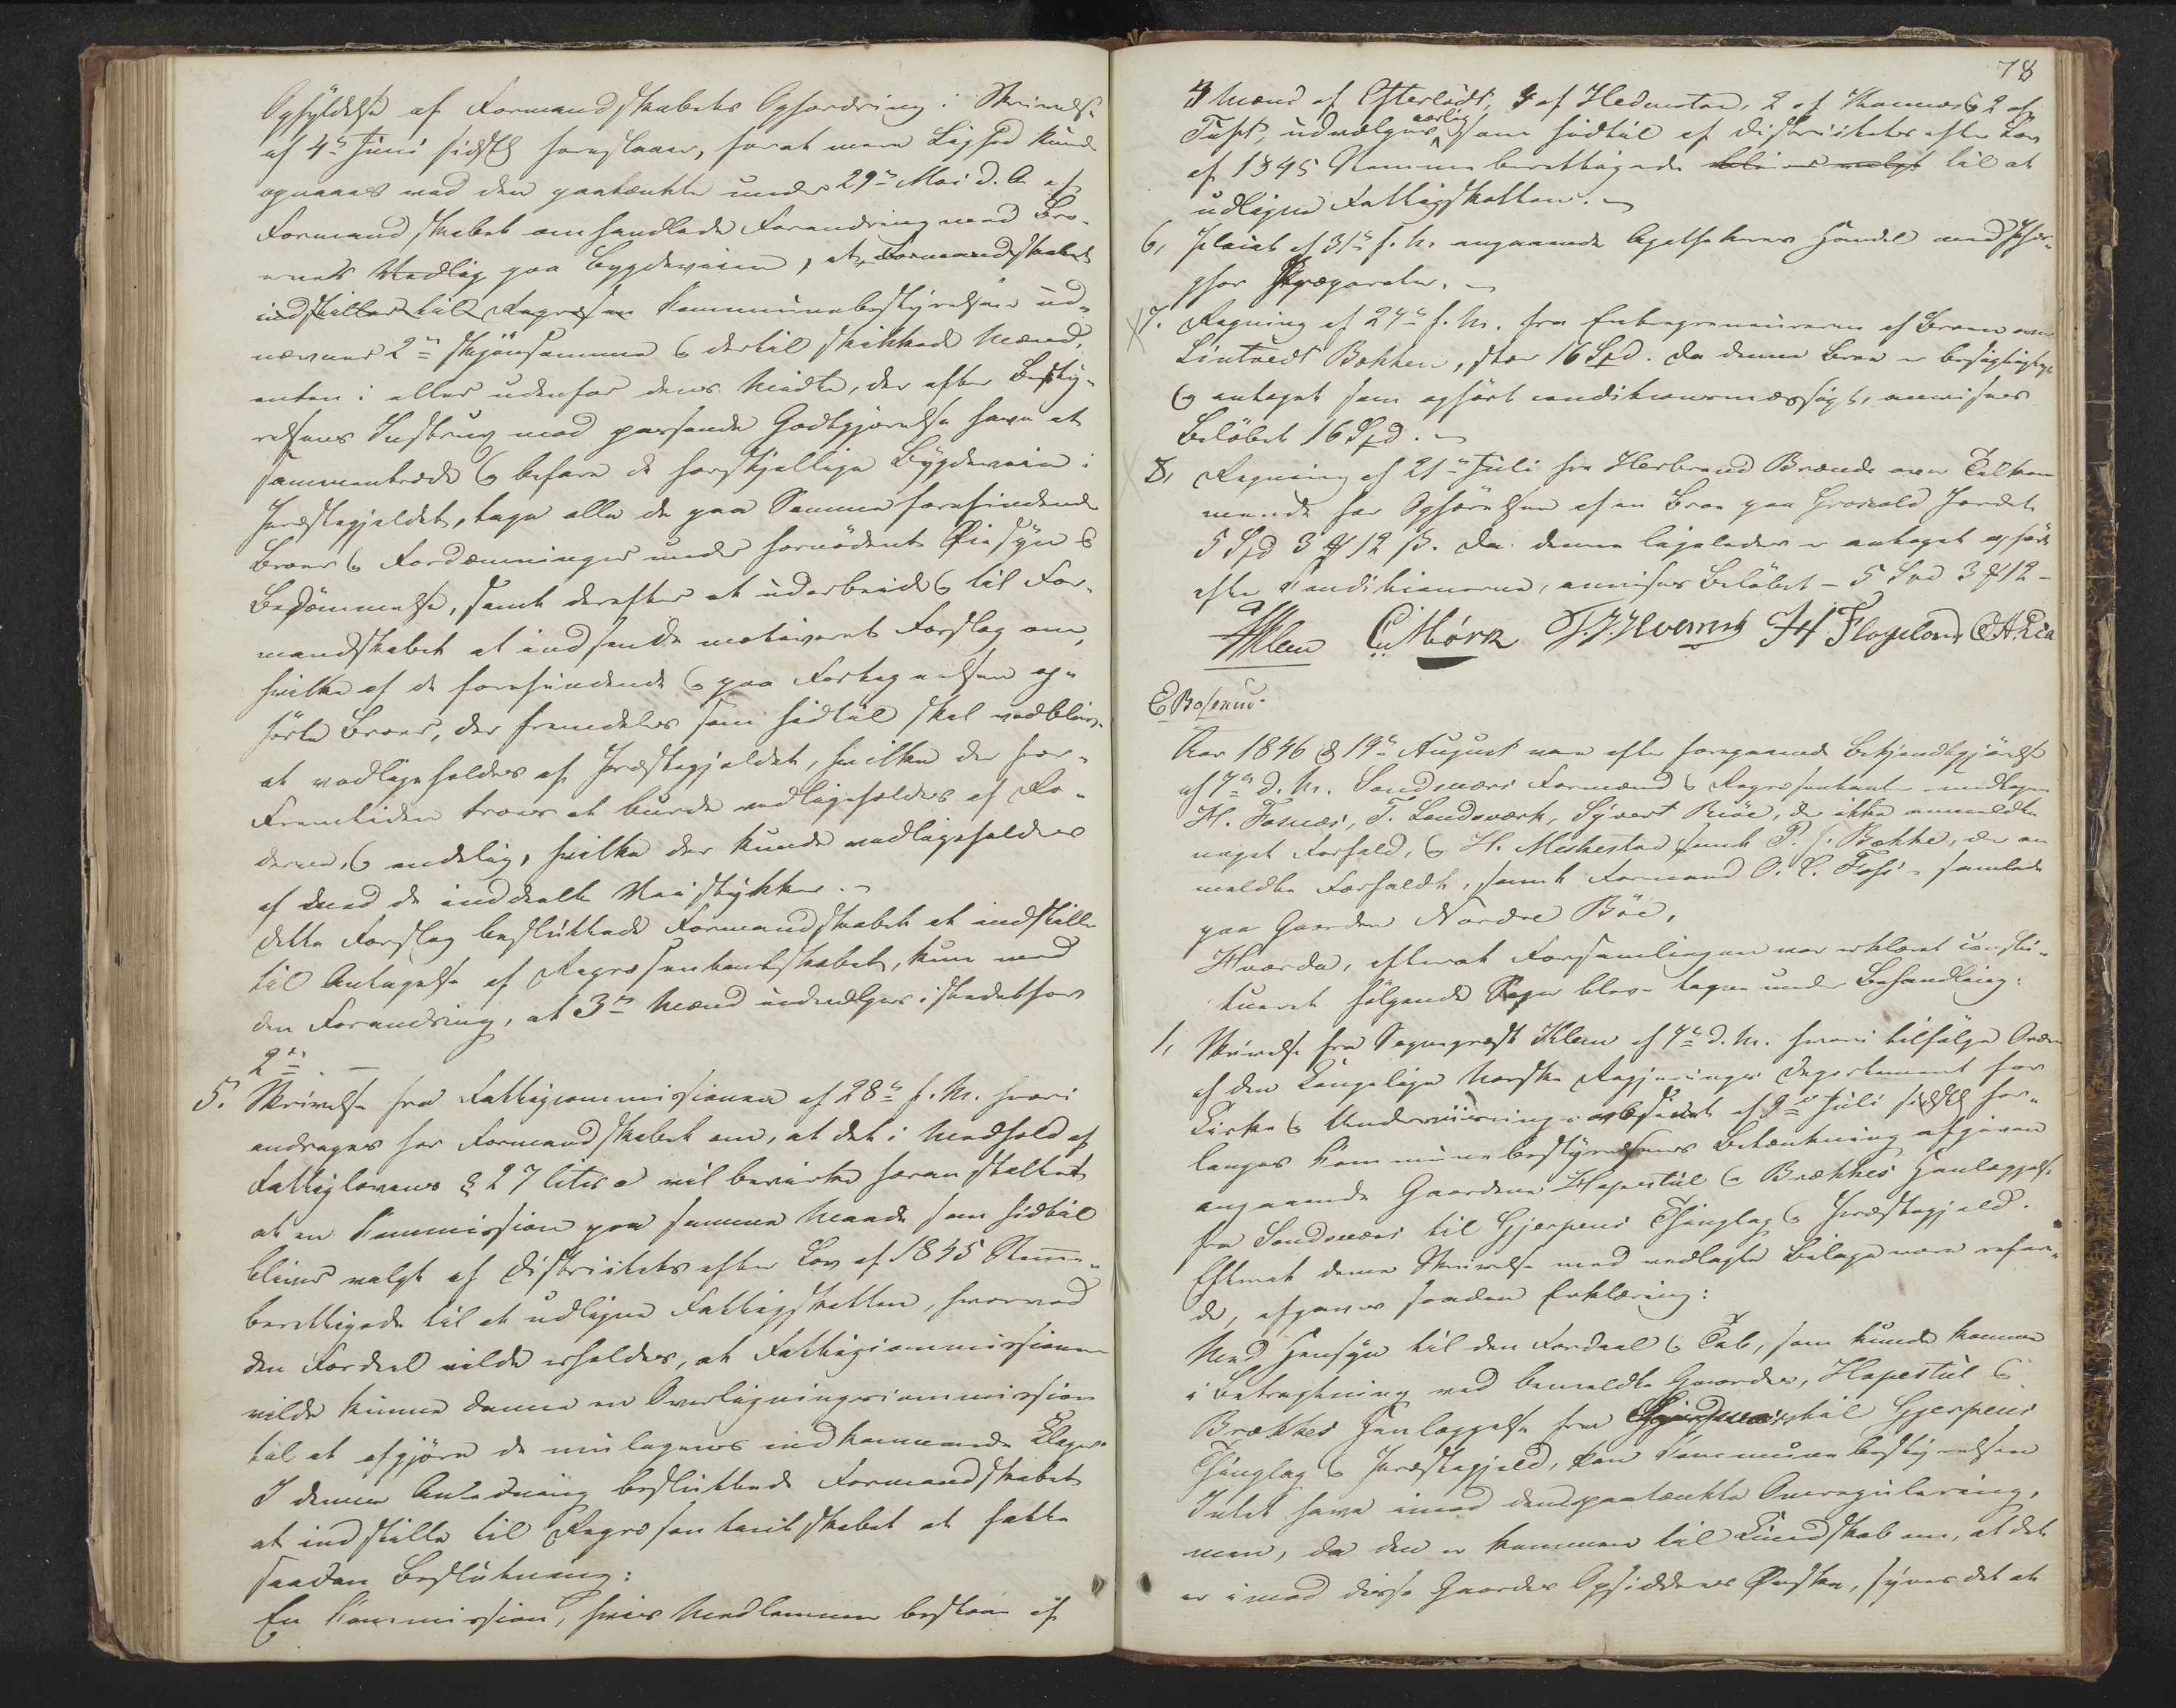 Opfyldelse af Formandskabets Opfordring i Skrivelse
af 4de Juni sidstl foreslaaer, forat mere Lighed kunde
opnaaes ved den paatænkte under 29de Mai d. A. af
Formandskabet omhandlede Forandring med Bro-
ernes Vedlig paa Bygdeveien, at Formandskabet
indstiller til Repræsen Kommunebestyrelsen ud-
nævner 2de skjønsomme & dertil skikkede Mænd,
enten i eller udenfor dens Midte, der efter Besty-
relsens Instrux mod passende Godtgjørelse have at
sammentræde & befare de forskjellige Bygdeveie i
Præstegjeldet, tage alle de paa Samme forefindende
Broer & Fordæmninger under fornødent Øiesyn &
Bedømmelse, samt derefter at udarbeide & til For-
mandskabet at indsende motiveret Forslag om,
hvilke af de forefindende & paa Fortegnelsen op-
førte Broer, der fremdeles som hidtil skal vedblive
at vedligeholdes af Præstegjeldet, hvilke der for
Fremtiden troes at burde vedligeholdes af Ro-
derne, & endelig, hvilke der kunde vedligeholdes
af med de inddeelte Veistykker. –
Dette Forslag besluttede Formandskabet at indstille
til Antagelse af Repræsentantskabet, kun med
den Forandring, at 3de Mænd udvælges istedetfor
2de –
5. Skrivelse fra Fattigcommissionen af 28de f. M. hvori
andrages for Formandskabet om, at det i Medhold af
Fattiglovens § 27 litr a vil bevirke foranstaltet
at en Kommission paa samme Maade som hidtil
bliver valgt af Districtets efter Lov af 1845 Stemme-
berettigede til at udligne Fattigskatten, hvorved
den Fordeel vilde erholdes, at Fattigcommissionen
vilde kunne danne en Overligningscommission
til at afgjøre de muligens indkommende Klager.
I denne Anledning besluttede Formandskabet
at indstille til Repræsentantskabet at fatte
saadan Beslutning:
En Kommission, hvis Medlemmer bestaae af
78
4 Mænd af Efterlødt, 4 af Hedensten, 2 af Komnæs & 2 af
Tuft, udvælges aarlig som hidtil af Districtets efter Lov
af 1845 Stemmeberettigede bliver valgt til at
udligne Fattigskatten. –
6, Placat af 31te f. M. angaaende Apothekeres Handel med Phos-
phor Præparater. –
7. Regning af 24de f. M. fra Entrepreneurerne af Broen over
Lintvedt Bækken, stor 16 Spd. Da denne Broe er besigtiget
& antaget som opført conditionsmæssigt, anvises
Beløbet 16 Spd. –
8, Regning af 21de Juli fra Herbrand Brænde over Tilkom-
mende for Opførelsen af en Broe paa Grosvold Jordet
5 Spd 3 # 12 ß. Da denne ligeledes er antaget opført
efter Conditionerne, anvises Beløbet – 5 Spd 3 # 12 –
HKlem C Mörch T. J. Hvamb H Flogeland C A Lia
E Boserud.
Aar 1846 d 19de August var efter foregaaende Bekjendtgjørelse
af 7de d. M. Sandsværs Formænd & Repræsentanter undtagen
H. Fosnæs, T. Landsværk, Syvert Böe, der ikke anmeldte
noget Forfald, & H. Meskestad samt P. J. Bække, der an
meldte Forfaldt, samt Formand O. C. Foss – samlede
paa Gaarden Nordre Böe,
Hvorda, efterat Forsamlingen var erklæret consti-
tueret følgende Sager blev tagne under Behandling:
1, Skrivelse fra Sognepræst Klem af 7de d. M. hvori tilfølge Ordre
af den Kongelige Norske Regjerings Departement for
Kirke & Underviisningsvæsenet af 9de Juli sidstl for-
langes Kommunebestyrelsens Betænkning afgiven
angaaende Gaardene Hapestul & Brækkes Henlæggelse
fra Sandsvær til Gjerpens Thinglag & Præstegjeld.
Efterat denne Skrivelse med vedlagte Bilage var refere-
de, afgaves saadan Erklæring:
Med Hensyn til den Fordeel & Tab, som kunde komme
i Betragtning ved bemeldte Gaarders, Hapestul &
Brækkes Henlæggelse fra Sandsvær til Gjerpens
Thinglag & Præstegjeld, kan Kommunebestyrelsen
Intet have imod den paatænkte Omregulering,
men, da den er kommen til Kundskab om, at det
er imod disse Gaarders Opsidderes Ønske, synes det at